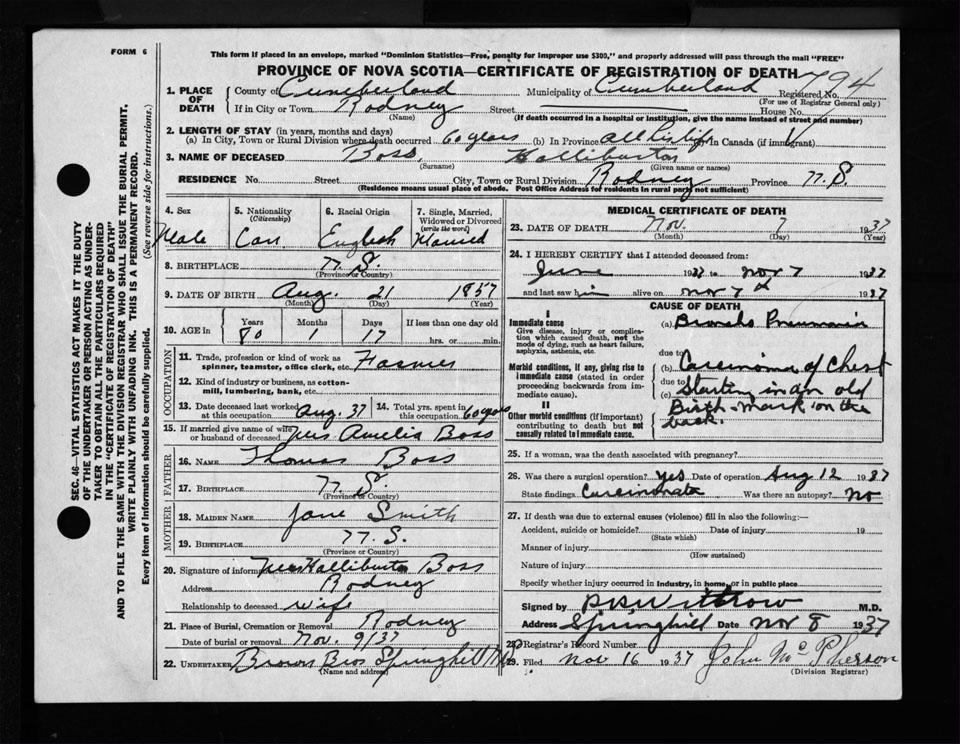 FORM 6
This form if placed in an envelope, marked "Dominion Statistics—Free, penalty for improper use $300," and properly addressed will pass through the mail "FREE"
PROVINCE OF NOVA SCOTIA—CERTIFICATE OF REGISTRATION OF DEATH
794
1. PLACE OF DEATH County of Cumberland Municipality of Cumberland Registered No.
(For use of Registrar General only)
If in City or Town Rodney Street House No.
(Name) (If death occurred in a hospital or institution, give the name instead of street and number)
2. LENGTH OF STAY (in years, months and days)
(a) In City, Town or Rural Division where death occurred 60 years (b) In Province all his life In Canada (if immigrant)
3. NAME OF DECEASED Boss, Halliburton
(Surname) (Given name or names)
RESIDENCE No. Street City, Town or Rural Division Rodney Province N.S.
(Residence means usual place of abode. Post Office Address for residents in rural parts not sufficient)
4. Sex 5. Nationality (Citizenship) 6. Racial Origin 7. Single, Married, Widowed or Divorced (write the word)
Male Can. English Married
8. BIRTHPLACE N.S.
(Province or Country)
9. DATE OF BIRTH Aug. 21 1857
(Month) (Day) (Year)
10. AGE in Years Months Days If less than one day old
80 1 17 hrs. or min.
OCCUPATION
11. Trade, profession or kind of work as spinner, teamster, office clerk, etc. Farmer
12. Kind of industry or business, as cotton-mill, lumbering, bank, etc.
13. Date deceased last worked at this occupation Aug. 37 14. Total yrs. spent in this occupation 60 years
15. If married give name of wife or husband of deceased Mrs Amelia Boss
FATHER
16. NAME Thomas Boss
17. BIRTHPLACE N.S.
(Province or Country)
MOTHER
18. MAIDEN NAME Jane Smith
19. BIRTHPLACE N.S.
(Province or Country)
20. Signature of informant Mrs Halliburton Boss
Address Rodney
Relationship to deceased wife
21. Place of Burial, Cremation or Removal Rodney
Date of burial or removal Nov. 9/37
22. UNDERTAKER Brown Bros Springhill
(Name and address)
MEDICAL CERTIFICATE OF DEATH
23. DATE OF DEATH Nov. 7 1937
(Month) (Day) (Year)
24. I HEREBY CERTIFY that I attended deceased from:
June 1937 to Nov 7 1937
and last saw him alive on Nov 7th 1937
CAUSE OF DEATH
I
Immediate cause (a) Broncho Pneumonia
Give disease, injury or complication which caused death, not the mode of dying, such as heart failure, asphyxia, asthenia, etc.
due to
Morbid conditions, if any, giving rise to immediate cause (stated in order proceeding backwards from immediate cause).
(b) Carcinoma of Chest
due to
(c) Starting in an old
Birth-mark on the
back.
II
Other morbid conditions (if important) contributing to death but not causally related to immediate cause.
25. If a woman, was the death associated with pregnancy?
26. Was there a surgical operation? Yes Date of operation Aug 12 1937
State findings Was there an autopsy? No
27. If death was due to external causes (violence) fill in also the following:—
Accident, suicide or homicide? Date of injury 19
(State which)
Manner of injury
(How sustained)
Nature of injury
Specify whether injury occurred in industry, in home, or in public place
Signed by Withrow M.D.
Address Springhill Date Nov 8 1937
28. Registrar's Record Number
29. Filed Nov 16 1937 John McPherson
(Division Registrar)
SEC. 46—VITAL STATISTICS ACT MAKES IT THE DUTY
OF THE UNDERTAKER OR PERSON ACTING AS UNDER-
TAKER TO OBTAIN ALL THE PARTICULARS REQUIRED
IN THE "CERTIFICATE OF REGISTRATION OF DEATH"
AND TO FILE THE SAME WITH THE DIVISION REGISTRAR WHO SHALL ISSUE THE BURIAL PERMIT.
WRITE PLAINLY WITH UNFADING INK. THIS IS A PERMANENT RECORD.
Every item of information should be carefully supplied. (See reverse side for instructions.)